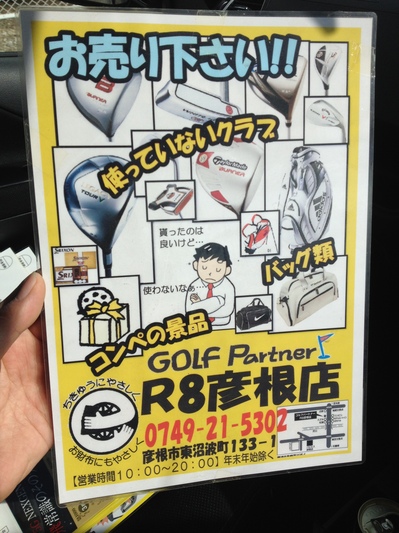 お売り下さい!!
使っていないクラブ
BURNER
TaylorMade
BURNER
TOUR V
貰ったのは
良いけど…
使わないなぁ…
バッグ類
SRIXON
コンペの景品
GOLF Partner
R8彦根店
ちきゅうにやさしく
お財布にもやさしく
0749-21-5302
彦根市東沼波町133-1
【営業時間10:00~20:00】年末年始除く